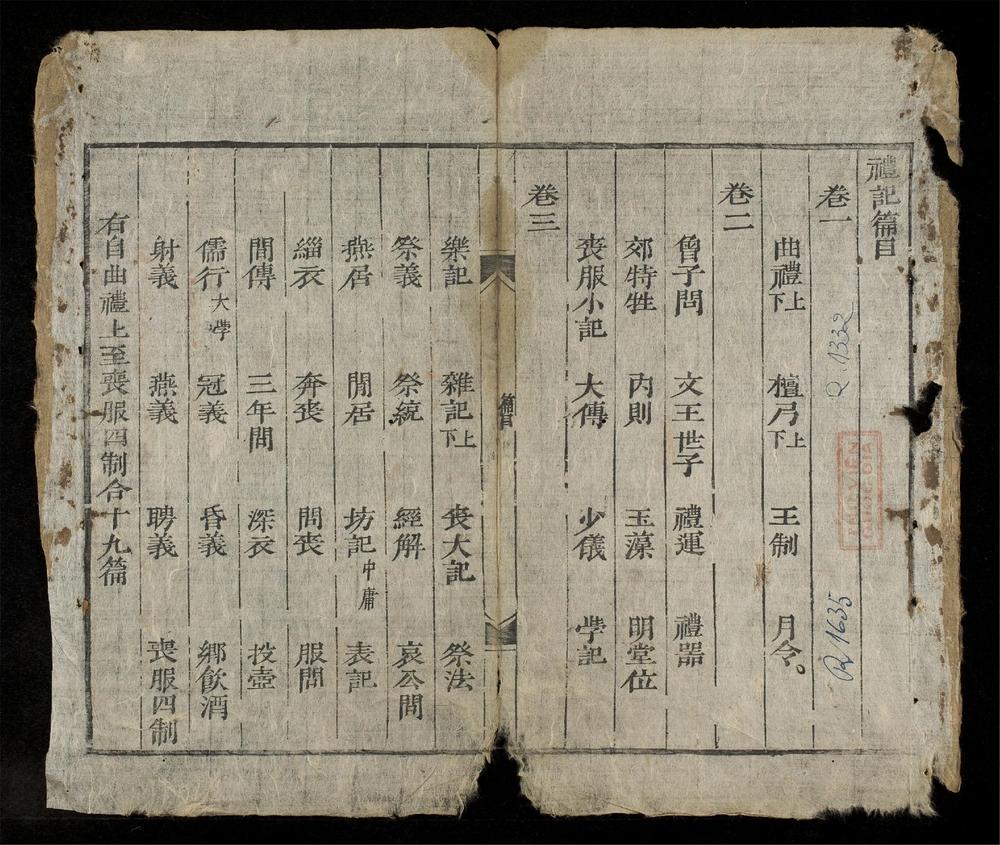 禮記篇目
卷一
曲禮上下 檀弓上下 王制 月令。
卷二
曾子問 文王世子 禮運 禮器
郊特牲 內則 玉藻 明堂位
喪服小記 大傳 少儀 學記
卷三
篇目
樂記 雜記上下 喪大記 祭法
祭義 祭統 經解 哀公問
燕居 閒居 坊記 中庸 表記
緇衣 奔喪 問喪 服問
間傳 三年問 深衣 投壺
儒行 大學 冠義 昏義 鄉飲酒
射義 燕義 聘義 喪服四制
右自曲禮上至喪服四制合十九篇
R 1332
R 1635